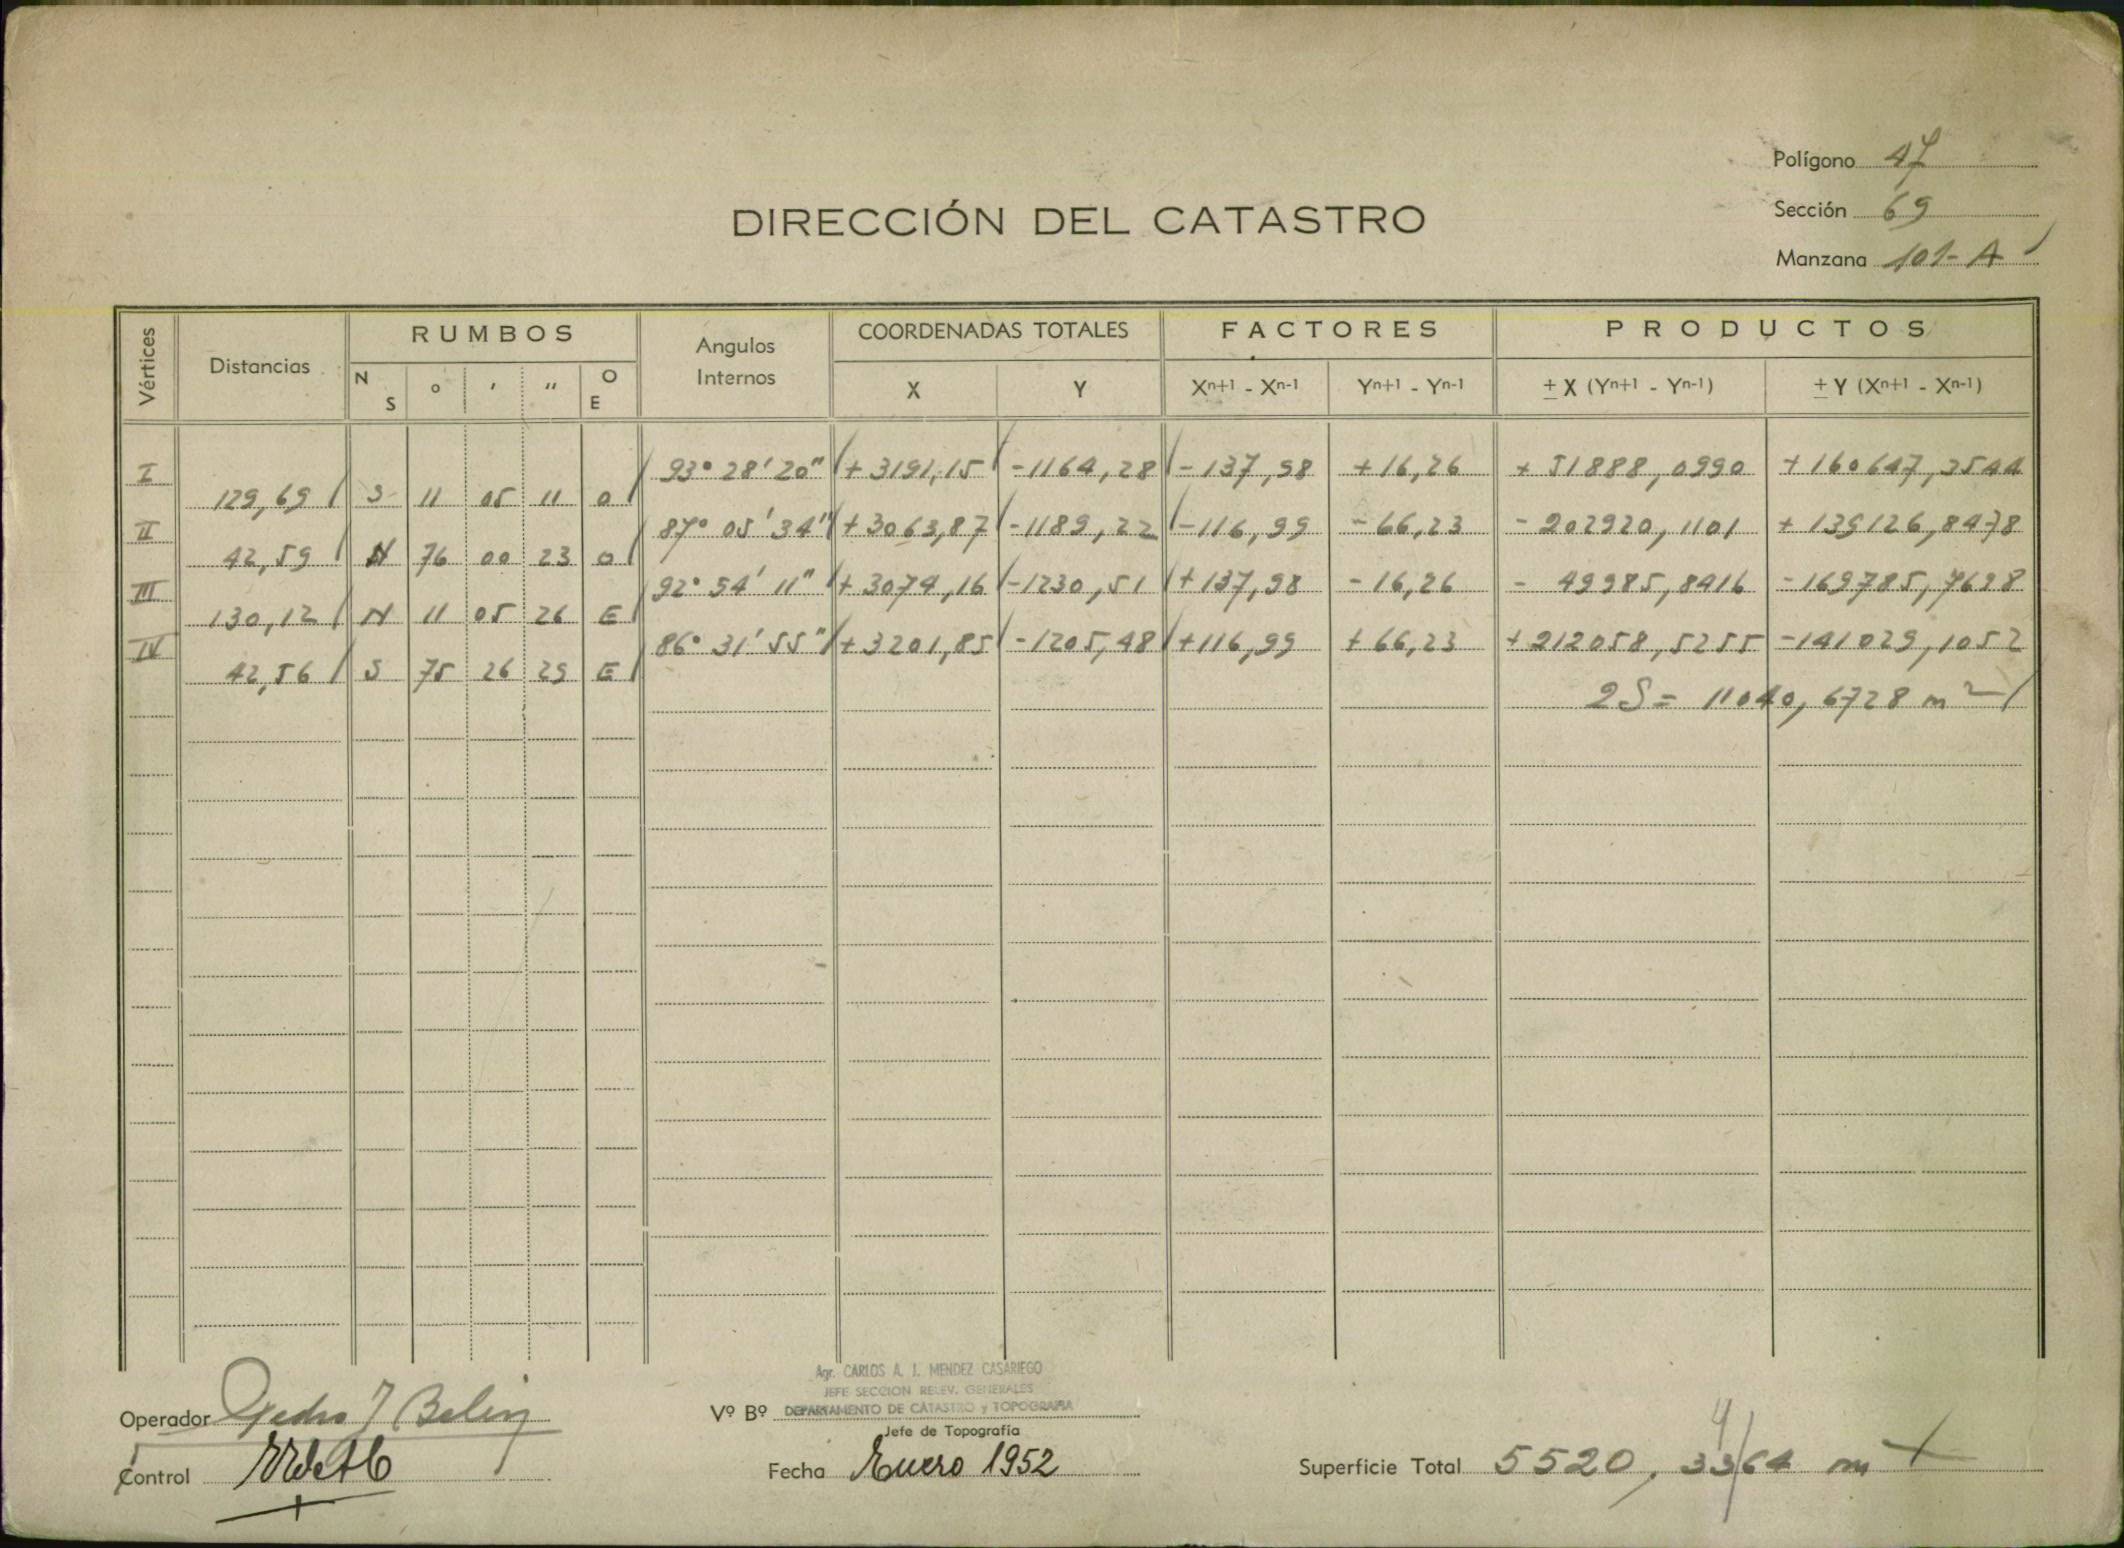 Polígono 47
DIRECCIÓN DEL CATASTRO
Sección 69
Manzana 101-A
Vértices Distancias RUMBOS Angulos Internos COORDENADAS TOTALES FACTORES PRODUCTOS
N S ° ' " O E X Y Xn+1 - Xn-1 Yn+1 - Yn-1 ± X (Yn+1 - Yn-1) ± Y (Xn+1 - Xn-1)
I 93° 28' 20" +3191,15 -1164,28 -137,98 +16,26 +51888,0990 +160647,3544
129,69 S 11 05 11 O
II 87° 05' 34" +3063,87 -1189,22 -116,99 -66,23 -202920,1101 +139126,8478
42,59 N 76 00 23 O
III 92° 54' 11" +3074,16 -1230,51 +137,98 -16,26 -49985,8416 -169785,7698
130,12 N 11 05 26 E
IV 86° 31' 55" +3201,85 -1205,48 +116,99 +66,23 +212058,5255 -141029,1052
42,56 S 75 26 29 E
2S = 11040,6728 m2
Agr. CARLOS A. J. MENDEZ CASARIEGO
JEFE SECCION RELEV. GENERALES
Operador Pedro J Vº Bº DEPARTAMENTO DE CATASTRO y TOPOGRAFIA
Jefe de Topografía
Control Fecha Enero 1952 Superficie Total 5520,3364 m